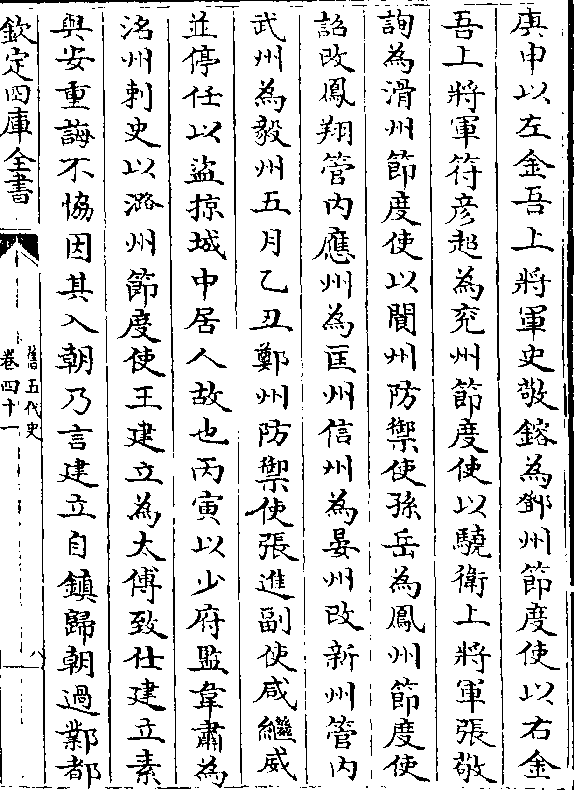 庚申以左金吾上將軍史敬鎔為鄧州節度使以右金
吾上將軍符彦超為兖州節度使以驍衛上將軍張敬
詢為滑州節度使以閬州防禦使孫岳為鳳州節度使
詔改鳳翔管内應州為匡州信州為晏州改新州管内
武州為毅州五月乙丑鄭州防禦使張進副使咸繼威
並停任以盜掠城中居人故也丙寅以少府監韋肅為
洺州刺史以潞州節度使王建立為太傅致仕建立素
與安重誨不協因其入朝乃言建立自鎮歸朝過鄴都
欽定四庫全書
舊五代史
卷四十一
八